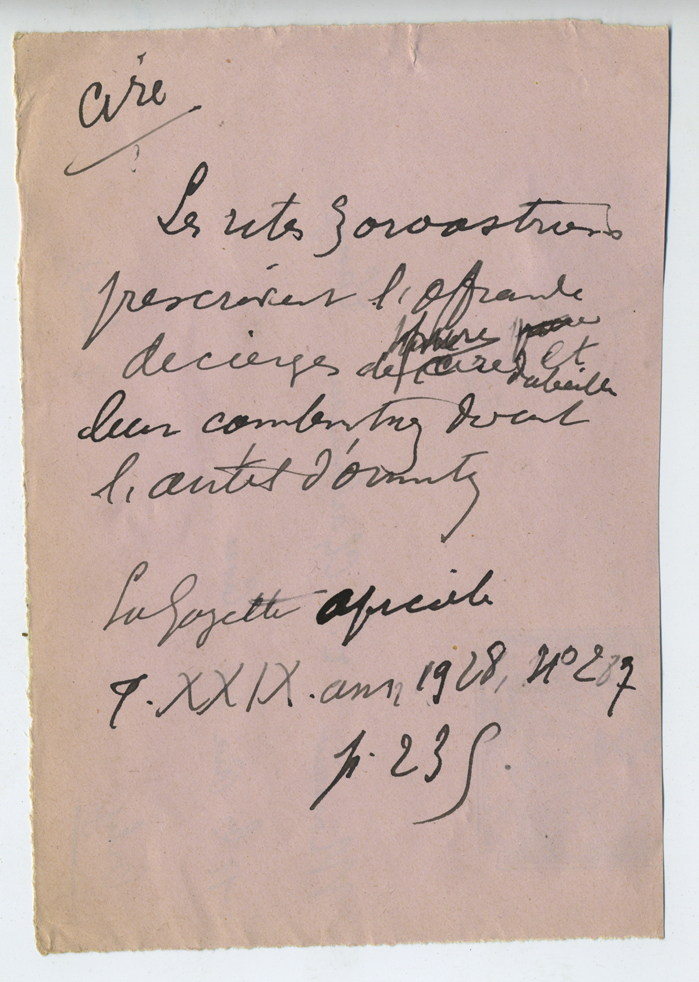 Cire
Les rites Zoroastriens
prescrivent l'offrande
de cierges de cires et
d'abeilles
leur combustion devant
l'autel d'Ormutz
La Gazette apicole
T. XXIX. ann 1928, No 287
p. 235.